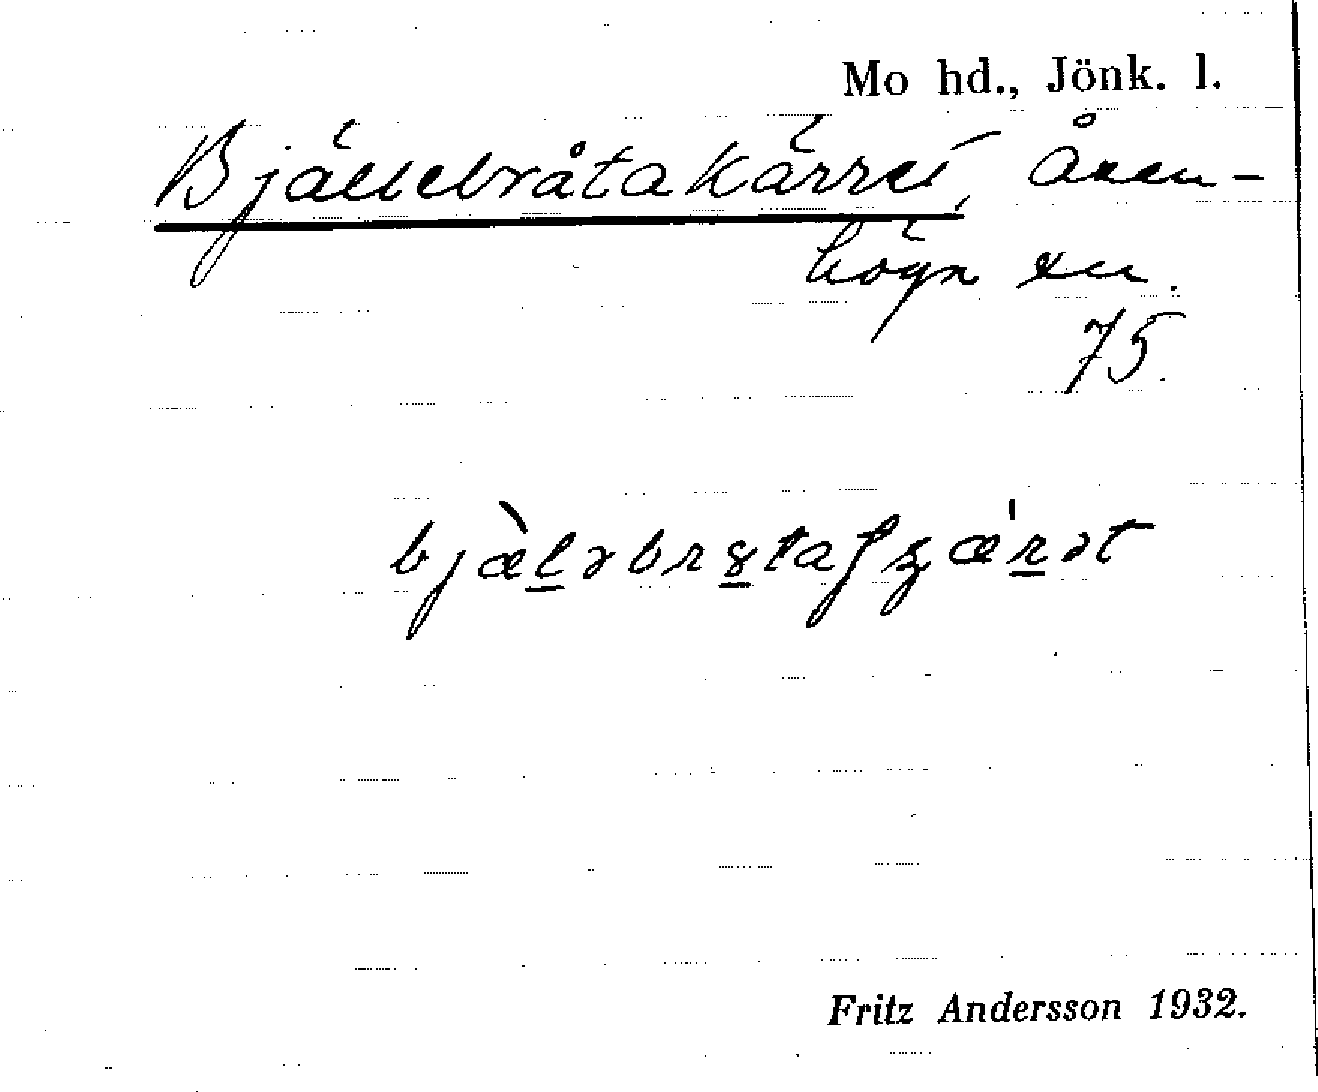 Mo hd., Jönk. l.
Bjällebråtakärret, Åsen-
högn sn.
75.
bjæ̀l̲əbrꝋ̲taʃɡǽr̲ət
Fritz Andersson 1932.